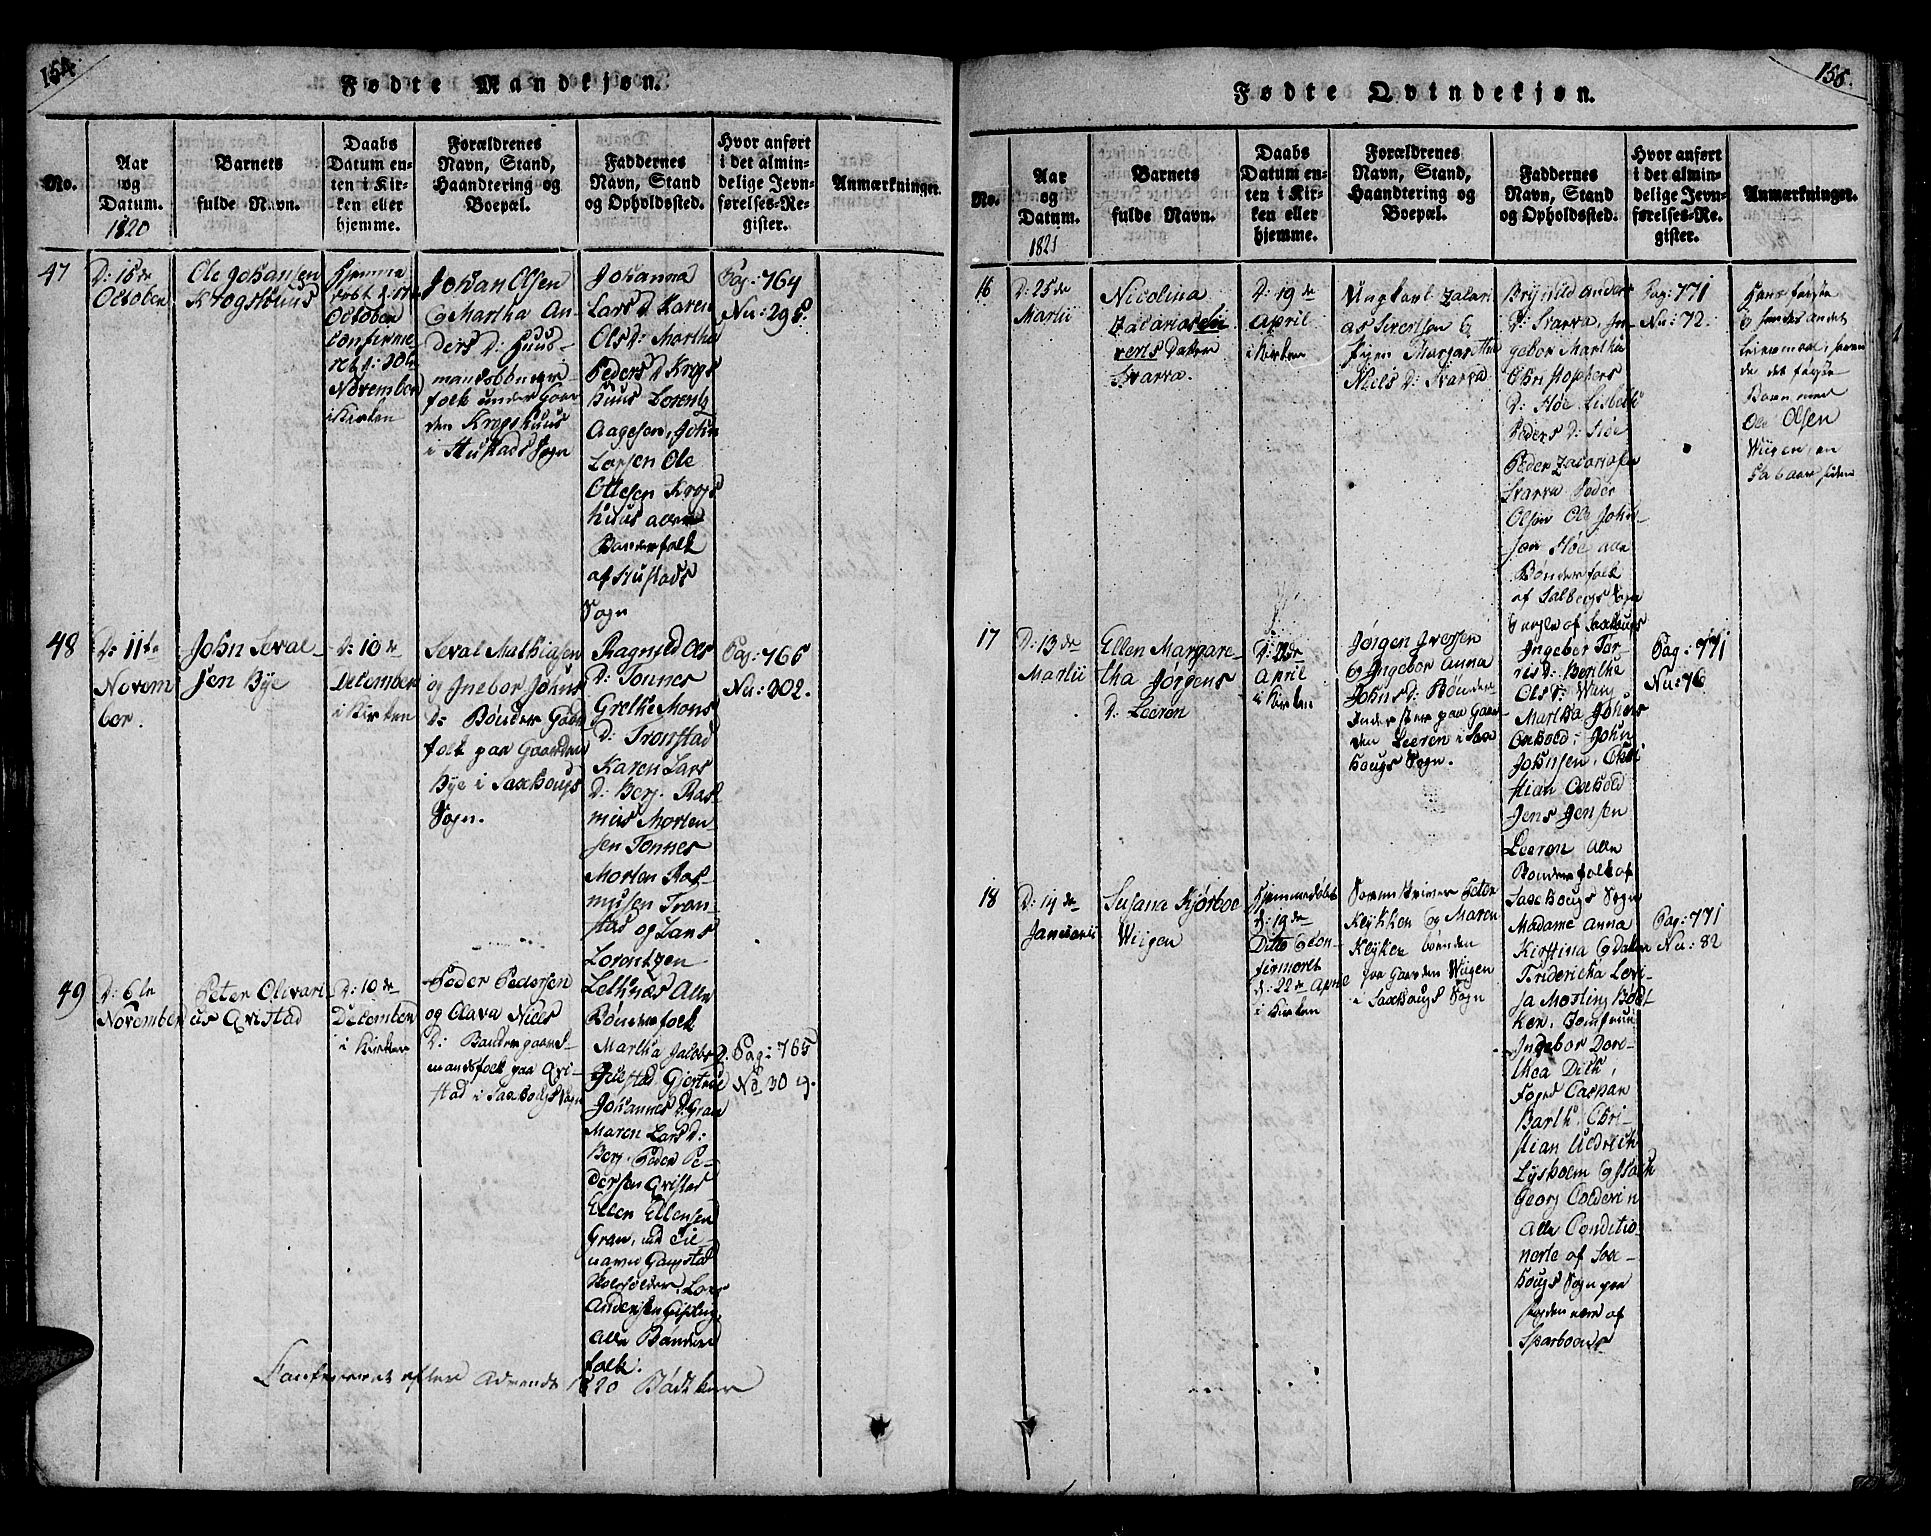 154.
Fødte Mandkjøn.
No.
Aar
og
Datum.
1820
Barnets
fulde Navn.
Daabs
Datum en-
ten i Kir-
ken eller
hjemme.
Forældrenes
Navn, Stand,
Haandtering og
Boepæl.
Faddernes
Navn, Stand
og Opholdssted.
Hvor anført
i det almin-
delige Jevn-
førelses-Re-
gister.
Anmærkninger.
47
D: 15de
October
Ole Johansen
Krogshuus
Hjemme
døbt d: 17de
October
Confirme-
ret d: 30te
November
i Kirken
Johan Olsen
& Martha An-
ders D: Huus-
mands bønder-
folk under Gaar-
den Krogshuus
i Hustads Sogn
Johanna
Lars D. Karen
Ols D: Marthe
Peders D Krogs
huus Lorentz
Aagesen, John
Larsen Ole
Ottesen Krogs
huus alle
Bønderfolk
af Hustads
Sogn
Pag: 764
Nu: 295.
48
D: 11te
Novem
ber.
John Seval-
sen Bye
D: 10de
December
i Kirken
Seval Mathiasen
og Inebor Johns
D: Bønder Gaar-
folk paa Gaarden
Bye i Saxhougs
Sogn.
Ragnild Ols
D: Tonnes
Grethe Mons
D: Tronstad
Karen Lars
D: Berg. Ras-
mus Morten-
sen Tonnes
Morten Ras-
musen Tron-
stad og Lars
Lorentzen
Lethnæs Alle
Bønderfolk
Pag: 765
Nu: 302.
49
D: 6te
November
Peter Olevari-
us Qvistad
D: 10de
December
i Kirken
Peder Pedersen
og Olava Niels
D: Bønder gaard-
mandsfolk paa Qvi-
stad i Saxhougs Sogn
Martha Jacobs D.
Johannes D: Gran
Maren Lars D:
Berg. Peder Pe-
dersen Qvistad
Ellen Ellensen
Gran,
Lars
Andersen
Alle Bønder
folk.
Pag: 765
No 309.
efter Advendt 1820 Bödtker
155.
Fødte Qvindekjøn.
No.
Aar
og
Datum.
1821
Barnets
fulde Navn.
Daabs
Datum en-
ten i Kir-
ken eller
hjemme.
Forældrenes
Navn, Stand,
Haandtering og
Boepæl.
Faddernes
Navn, Stand
og Opholdssted.
Hvor anført
i det almin-
delige Jevn-
førelses-Re-
gister.
Anmærkninger.
16
D: 25de
Martii
Nicolina
Zacarias Si
verts Datter
Svarva.
D: 19de
April
i Kirken
Ungkarl Zakari
as Sivertsen &
Pigen Margarethe
Niels D: Svarva
Brynild Anders
D: Svarva, In-
gebor Martha
Christophers
D: Høe Lisbeth
Peders D: Høe
Peder Zacariasen
Svarva Peder
Olsen Ole John-
sen Høe alle
Bønderfolk
af Salbergs Sogn
Pag: 771
Nu: 72.
Hans første
& hendes andet
Leiermaal, havde
det første
Barn med
Ole Olsen
Wiigen, en
6 aar siden
17
D: 13de
Martii
Ellen Margare-
tha Jørgens
D: Leeren
April
i Kirken
Jørgen Iversen
& Ingebor Anna
Johns D: Bønder
paa Gaar-
den Leeren i Sax
hougs Sogn.
Ingebor Tor-
ris D: Berithe
Ols D: Wiig
Martha Johns
Oxhold: John
Johnsen, Chri
stian Oxhold
Jens Jensen
Leeren Alle
Bønderfolk af
Saxhougs Sogn
Pag: 771
Nu: 76
18
D: 14de
Januarii
Susana Kjørboe
Wiigen
Hjemmedøbt
d: 19de
Ditto & Con-
firmeret
d: 22de April
i Kirken
Sorenskriver Peter
Klykken & Maren
Klykken boende
paa Gaarden Wiigen
i Saxhougs Sogn
Madame Anna
Kirstina & Datter
Fridericka Lovi-
sa Mosling Bødt
ker. Jomfrue
Ingebor Doro-
thea Dith,
Foged Caspar
Barth. Chri-
stian Uldrich
Lysholm &
Georg Colderin
Alle Conditio-
nerte af Sax-
hougs Sogn paa
Fogden nær af
Sparboens
Pag: 771
Nu: 82